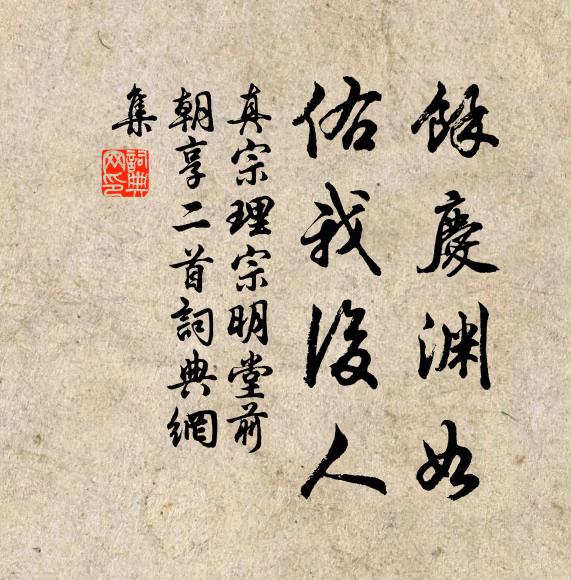 餘慶淵如
佑我後人
真宗理宗明堂前
朝享二首詞典網
集
詞典網印